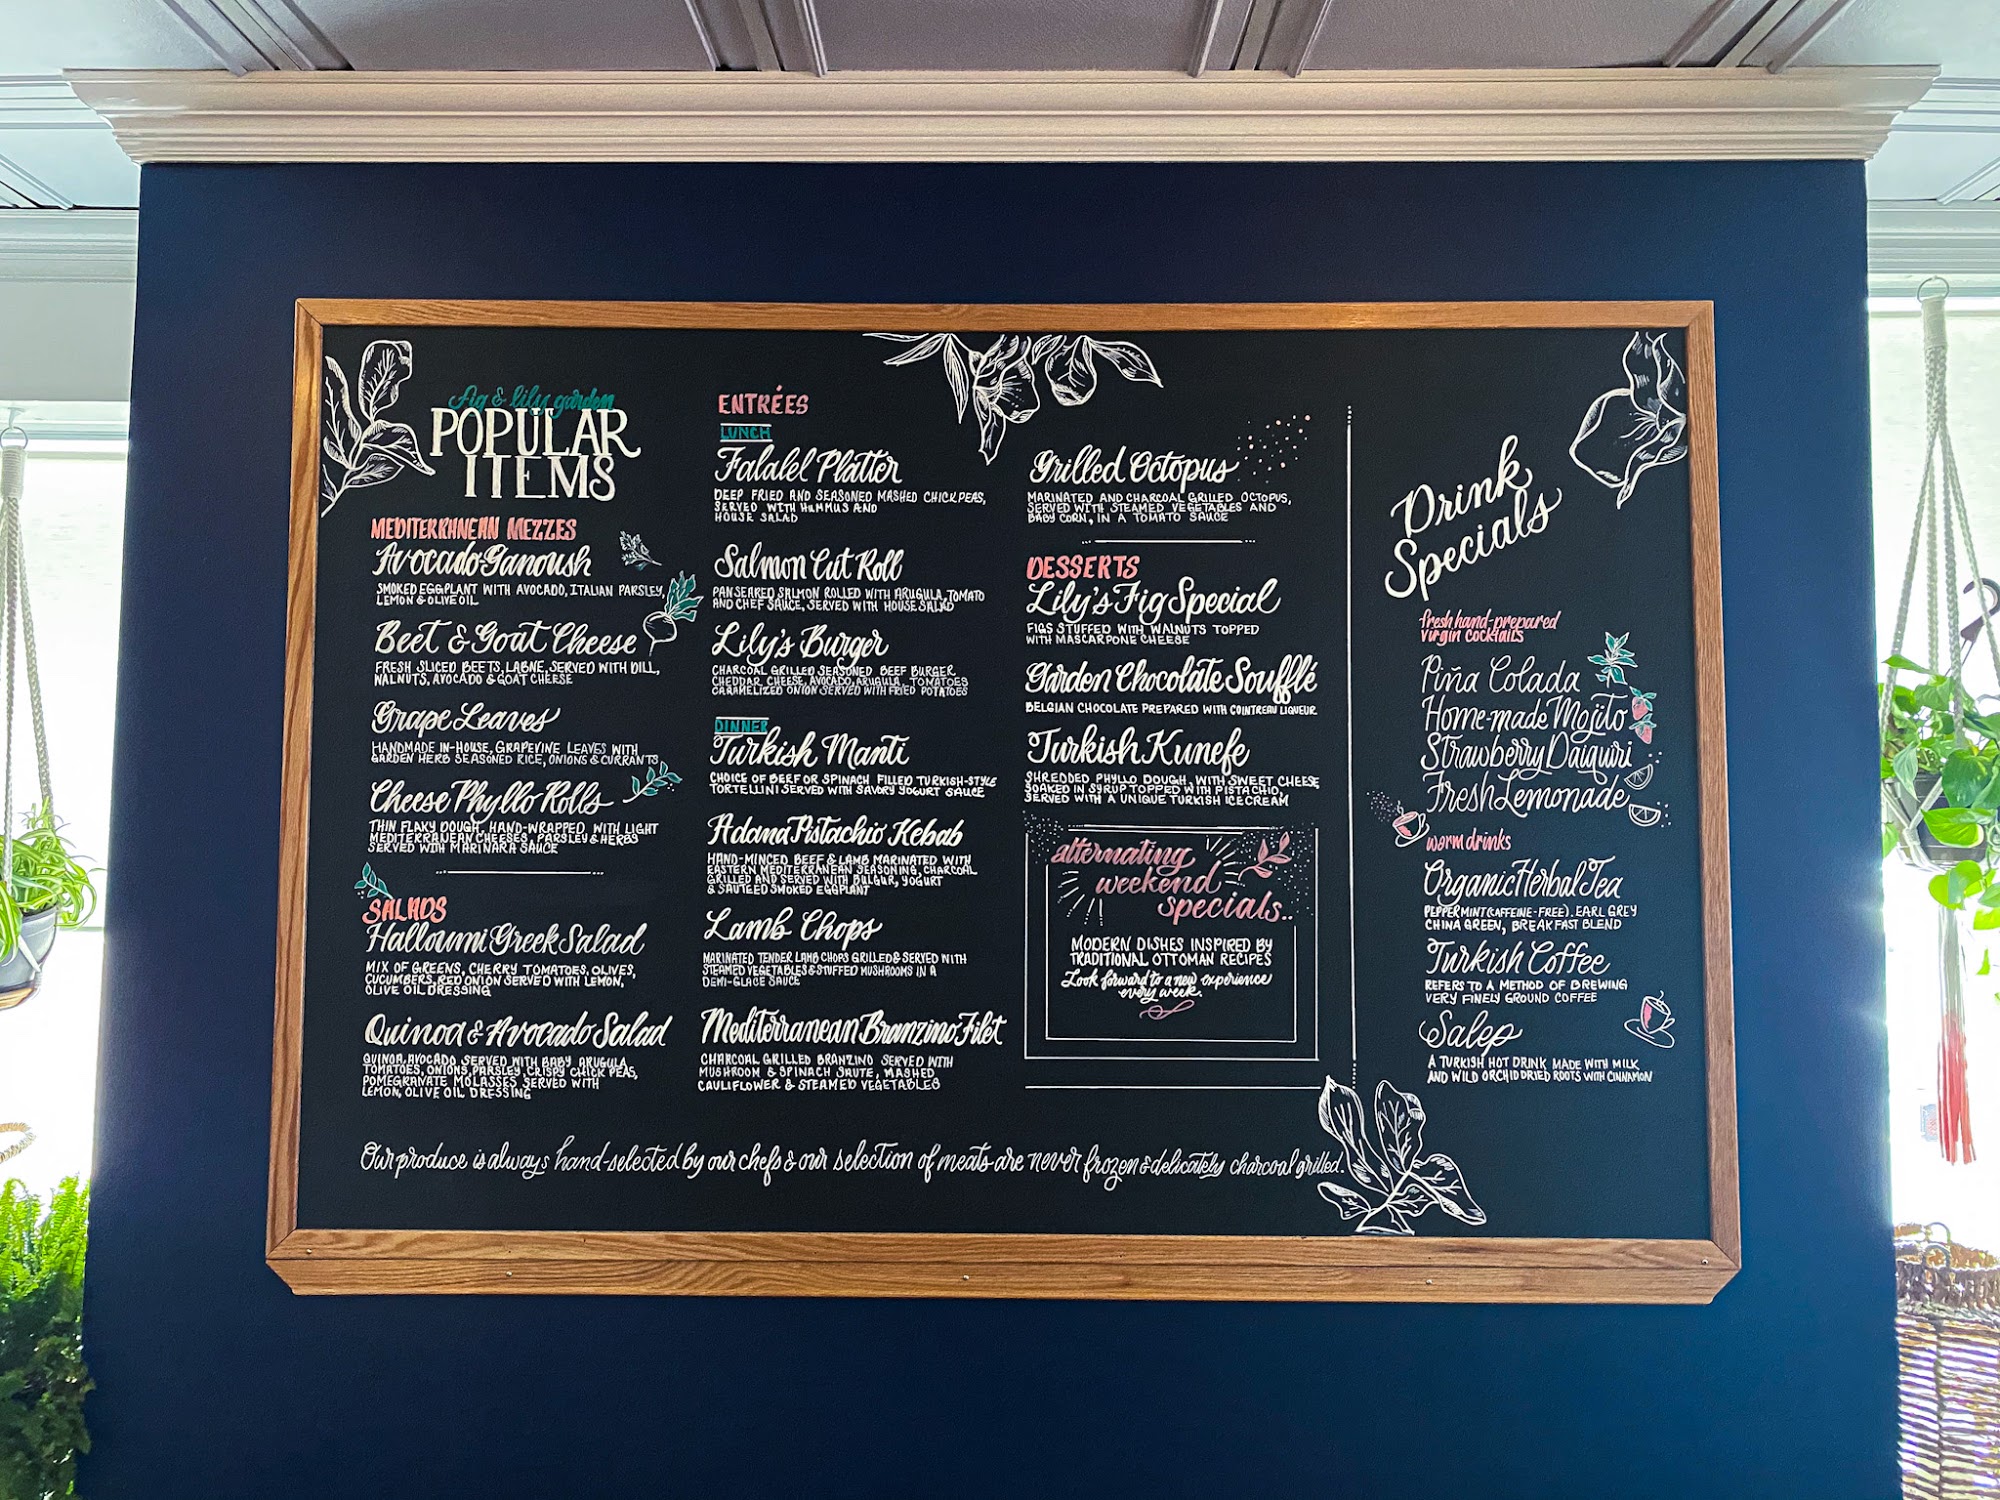 fig & lily garden
POPULAR
ITEMS
MEDITERRANEAN MEZZES
Avocado Ganoush
SMOKED EGGPLANT WITH AVOCADO, ITALIAN PARSLEY,
LEMON & OLIVE OIL
Beet & Goat Cheese
FRESH SLICED BEETS, LABNE, SERVED WITH DILL,
WALNUTS, AVOCADO & GOAT CHEESE
Grape Leaves
HANDMADE IN-HOUSE, GRAPEVINE LEAVES WITH
GARDEN HERB SEASONED RICE, ONIONS & CURRANTS
Cheese Phyllo Rolls
THIN FLAKY DOUGH, HAND-WRAPPED WITH LIGHT
MEDITERRANEAN CHEESES, PARSLEY & HERBS
SERVED WITH MARINARA SAUCE
SALADS
Halloumi Greek Salad
MIX OF GREENS, CHERRY TOMATOES, OLIVES,
CUCUMBERS, RED ONION SERVED WITH LEMON,
OLIVE OIL DRESSING
Quinoa & Avocado Salad
QUINOA, AVOCADO SERVED WITH BABY ARUGULA,
TOMATOES, ONIONS, PARSLEY, CRISPY CHICK PEAS,
POMEGRANATE MOLASSES SERVED WITH
LEMON, OLIVE OIL DRESSING
ENTRÉES
LUNCH
Falafel Platter
DEEP FRIED AND SEASONED MASHED CHICKPEAS,
SERVED WITH HUMMUS AND
HOUSE SALAD
Salmon Cut Roll
PAN SEARED SALMON ROLLED WITH ARUGULA, TOMATO
AND CHEF SAUCE, SERVED WITH HOUSE SALAD
Lily's Burger
CHARCOAL GRILLED SEASONED BEEF BURGER
CHEDDAR CHEESE, AVOCADO, ARUGULA, TOMATOES
CARAMELIZED ONION SERVED WITH FRIED POTATOES
DINNER
Turkish Manti
CHOICE OF BEEF OR SPINACH FILLED TURKISH-STYLE
TORTELLINI SERVED WITH SAVORY YOGURT SAUCE
Adana Pistachio Kebab
HAND-MINCED BEEF & LAMB MARINATED WITH
EASTERN MEDITERRANEAN SEASONING, CHARCOAL
GRILLED AND SERVED WITH BULGUR, YOGURT
& SAUTEED SMOKED EGGPLANT
Lamb Chops
MARINATED TENDER LAMB CHOPS GRILLED & SERVED WITH
STEAMED VEGETABLES & STUFFED MUSHROOMS IN A
DEMI-GLACE SAUCE
Mediterranean Branzino Filet
CHARCOAL GRILLED BRANZINO SERVED WITH
MUSHROOM & SPINACH SAUTE, MASHED
CAULIFLOWER & STEAMED VEGETABLES
Grilled Octopus
MARINATED AND CHARCOAL GRILLED OCTOPUS,
SERVED WITH STEAMED VEGETABLES AND
BABY CORN, IN A TOMATO SAUCE
DESSERTS
Lily's Fig Special
FIGS STUFFED WITH WALNUTS TOPPED
WITH MASCARPONE CHEESE
Garden Chocolate Soufflé
BELGIAN CHOCOLATE PREPARED WITH COINTREAU LIQUEUR
Turkish Kunefe
SHREDDED PHYLLO DOUGH, WITH SWEET CHEESE
SOAKED IN SYRUP TOPPED WITH PISTACHIO,
SERVED WITH A UNIQUE TURKISH ICECREAM
alternating
weekend
specials..
MODERN DISHES INSPIRED BY
TRADITIONAL OTTOMAN RECIPES
Look forward to a new experience
every week.
Drink
Specials
fresh hand-prepared
virgin cocktails
Piña Colada
Home-made Mojito
Strawberry Daiquiri
Fresh Lemonade
warm drinks
Organic Herbal Tea
PEPPERMINT (CAFFEINE-FREE). EARL GREY
CHINA GREEN, BREAKFAST BLEND
Turkish Coffee
REFERS TO A METHOD OF BREWING
VERY FINELY GROUND COFFEE
Salep
A TURKISH HOT DRINK MADE WITH MILK
AND WILD ORCHID DRIED ROOTS WITH CINNAMON
Our produce is always hand-selected by our chefs & our selection of meats are never frozen & delicately charcoal grilled.